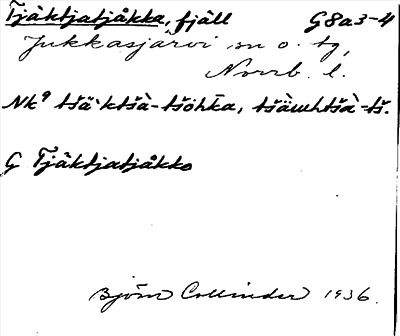 Tjäktjatjåkka, fjäll G8a3-4
Jukkasjärvi sn o. tg,
Norrb. l.
Nk⁹ tšä`ktšà-tšöhka, tšäwhtšà-tš.
G Tjäktjatjåkko
Björn Collinder 1936.